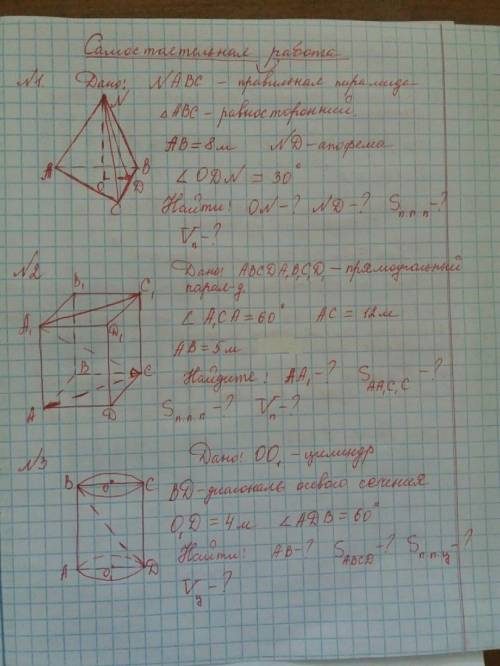 Самостоятельная работа
№1 Дано: NABC - правильная пирамида
△ABC - равносторонний.
AB = 8м ND - апофема
∠ODN = 30°
Найти: ON-? ND-? Sп.п.п-?
Vп-?
N
A
B
O
D
C
№2
Дано: ABCDA₁B₁C₁D₁ - прямоугольный
парал-д.
∠A₁CA = 60° AC = 12м
AB = 5м
Найдите: AA₁-? SAA₁C₁C-?
Sп.п.п-? Vп-?
B₁
C₁
A₁
D₁
B
C
A
D
№3
Дано: OO₁ - цилиндр
BD - диагональ осевого сечения
O₁D = 4м ∠ADB = 60°
Найти: AB-? SABCD-? Sп.п.ц-?
Vц-?
B
O
C
A
O₁
D